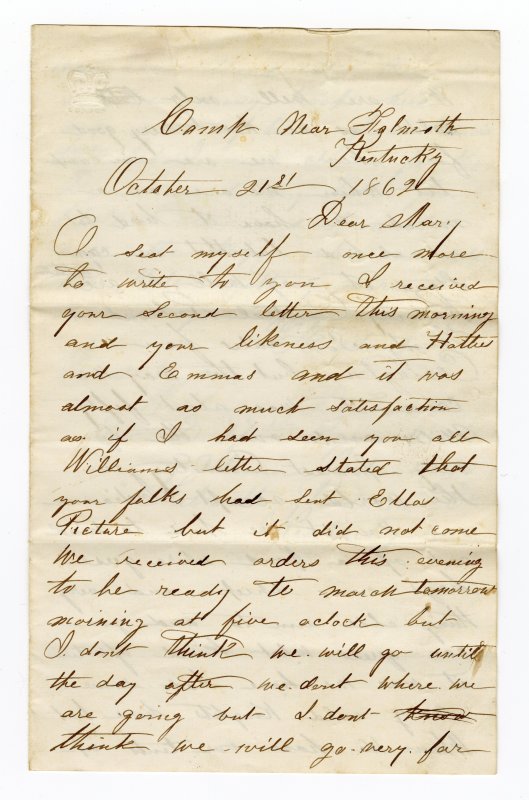 Camp Near Falmoth
Kentucky
October 21st 1862
Dear Mary
I seat myself once more
to write to you I received
your second letter this morning
and your likeness and Hatties
and Emmas and it was
almost as much satisfaction
as if I had seen you all
Williams letter stated that
your folks had sent Ellas
Picture but it did not come
We received orders this evening
to be ready to march tomorrow
moining at five oclock but
I dont think we will go until
the day after we dont where we
are going but I dont know
think we will go very far